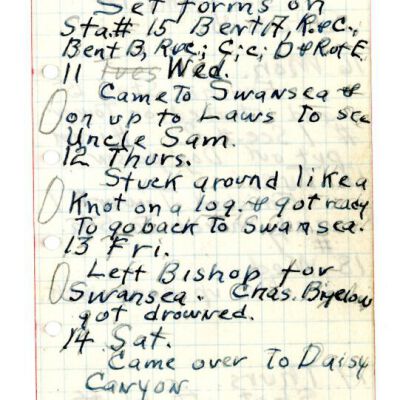 Set forms on
Sta.# 15 Bent A, R.&C.;
Bent B, R&C; C; c; D & Rot E
11 Tues Wed.
Came To Swansea &
on up to Laws To see
Uncle Sam.
12 Thurs.
Stuck around like a
Knot on a log. & got ready
To go back To Swansea.
13 Fri.
Left Bishop for
Swansea. Chas. Bigelow
got drowned.
14 Sat.
Came over To Daisy
Canyon